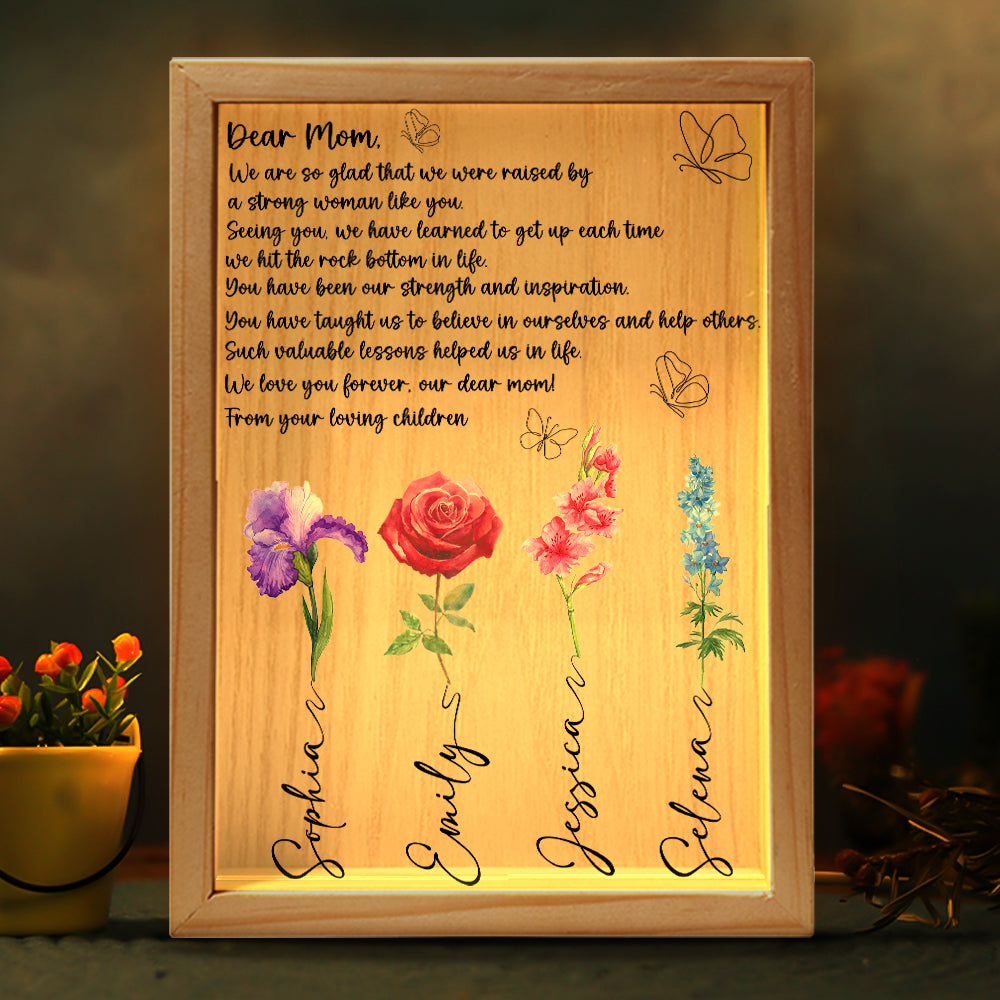 Dear Mom,
We are so glad that we were raised by
a strong woman like you.
Seeing you, we have learned to get up each time
we hit the rock bottom in life.
You have been our strength and inspiration.
You have taught us to believe in ourselves and help others.
Such valuable lessons helped us in life.
We love you forever, our dear mom!
From your loving children
Sophia
Emily
Jessica
Selena